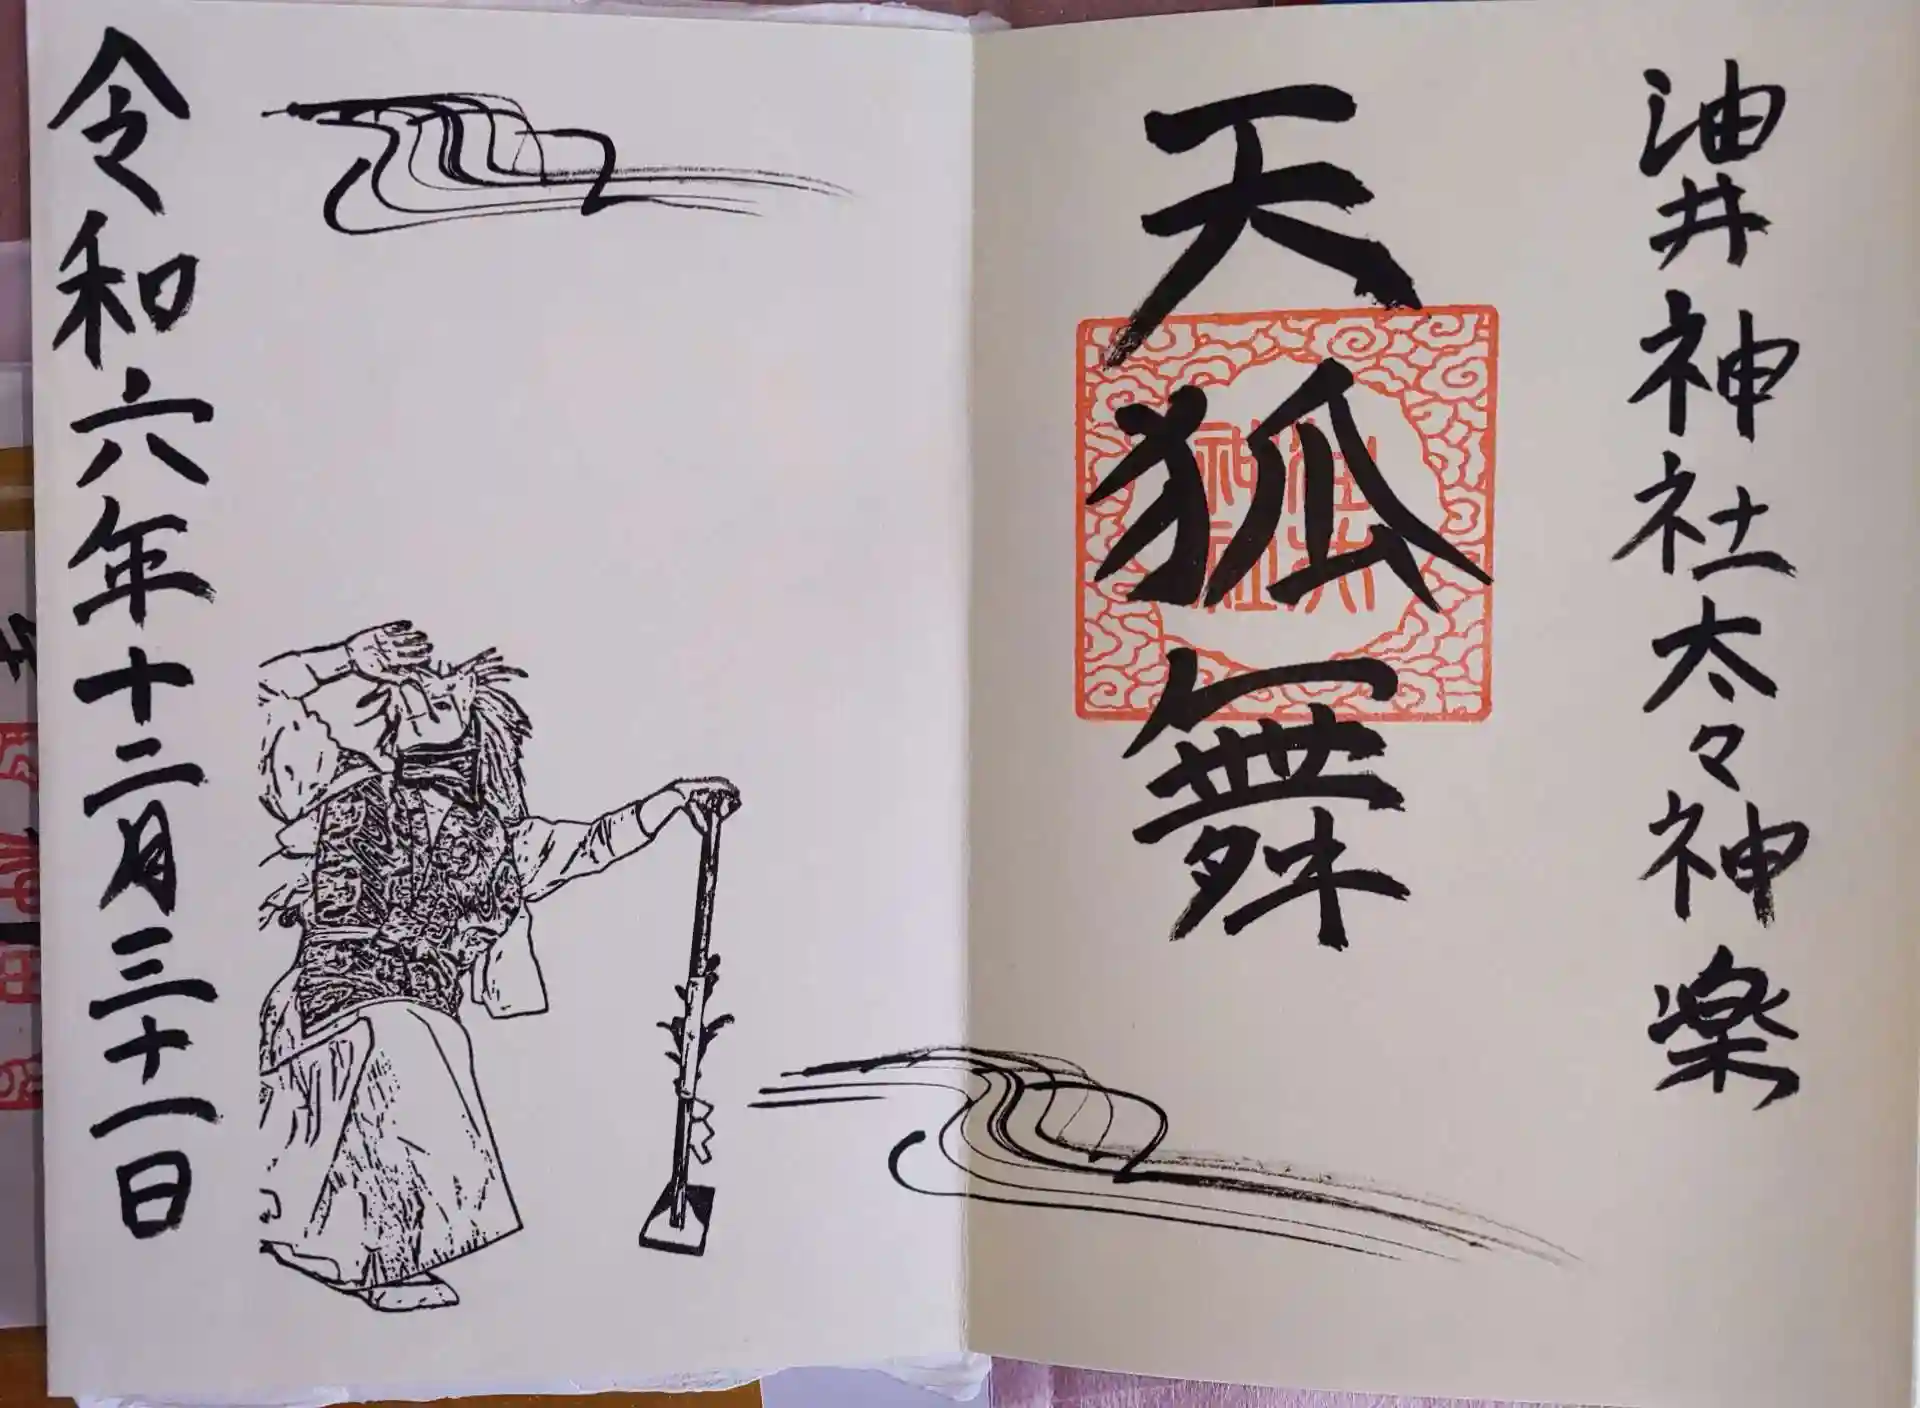 油井神社太々神楽
天狐舞
油井神社
令和六年十二月三十一日